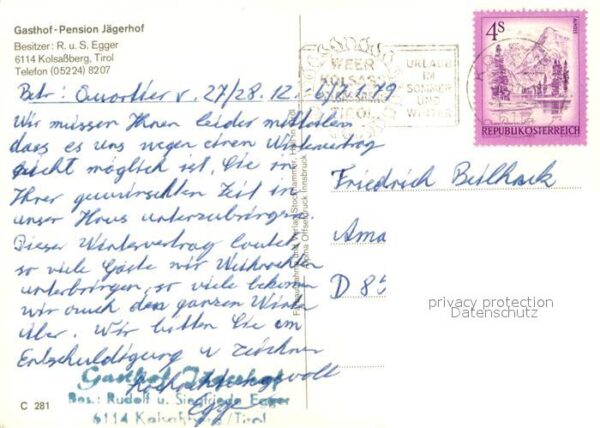 Gasthof-Pension Jägerhof
Besitzer: R. u. S. Egger
6114 Kolsaßberg, Tirol
Telefon (05224) 8207
Betr: Quartier v. 27/28.12.-6/7.1.79
Wir müssen Ihnen leider mitteilen
dass es uns wegen einen Wintervertrag
nicht möglich ist, Sie in
Ihrer gewünschten Zeit in
unser Haus unterzubringen.
Dieser Wintervertrag lautet
so viele Gäste wir Weihnachten
unterbringen, so viele bekommen
wir auch den ganzen Winter
über. Wir bitten Sie um
Entschuldigung u zeichnen
Hochachtungsvoll
Egger
Gasthof Jägerhof
Bes.: Rudolf u. Siegfriede Egger
6114 Kolsaßberg/Tirol
C 281
WEER
KOLSASS
TIROL
URLAUB
IM
SOMMER
UND
WINTER
4S
REPUBLIK ÖSTERREICH
Friedrich
Ama
D 85
privacy protection
Datenschutz